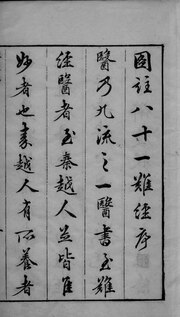 圖註八十一難經序
醫乃九流之一醫書至難
經醫者至秦越人並皆佳
妙者也秦越人有所養者